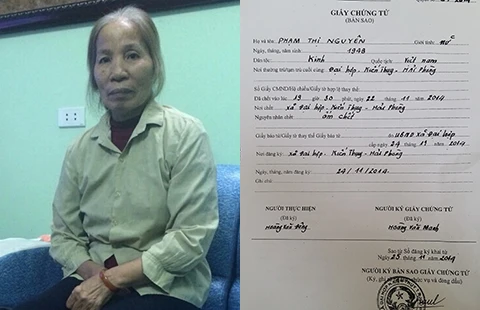 GIẤY CHỨNG TỬ
(BẢN SAO)
Họ và tên: PHẠM THỊ NGUYÊN Giới tính: nữ
Ngày, tháng, năm sinh: 1948
Dân tộc: Kinh Quốc tịch: Việt nam
Nơi thường trú/tạm trú cuối cùng: Đại hợp, Kiến Thụy, Hải Phòng
Số Giấy CMND/Hộ chiếu/Giấy tờ hợp lệ thay thế:
Đã chết vào lúc: 19 giờ 30 phút, 22 tháng 11 năm 2014
Nơi chết: xã Đại hợp, Kiến Thụy, Hải Phòng
Nguyên nhân chết: ốm chết
Giấy báo tử/Giấy tờ thay thế Giấy báo tử do UBND xã Đại hợp
cấp ngày 24 tháng 11 năm 2014
Nơi đăng ký: xã Đại hợp, Kiến Thụy, Hải Phòng
Ngày, tháng, năm đăng ký: 24/11/2014
Ghi chú:
NGƯỜI THỰC HIỆN NGƯỜI KÝ GIẤY CHỨNG TỬ
(Đã ký) (Đã ký)
Hoàng Văn Hoàng Văn Mạnh
Sao từ Sổ đăng ký khai tử
Ngày 25 tháng 11 năm 2014
NGƯỜI KÝ BẢN SAO GIẤY CHỨNG TỬ